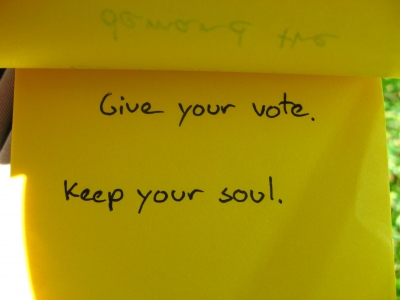 Give your vote.
Keep your soul.